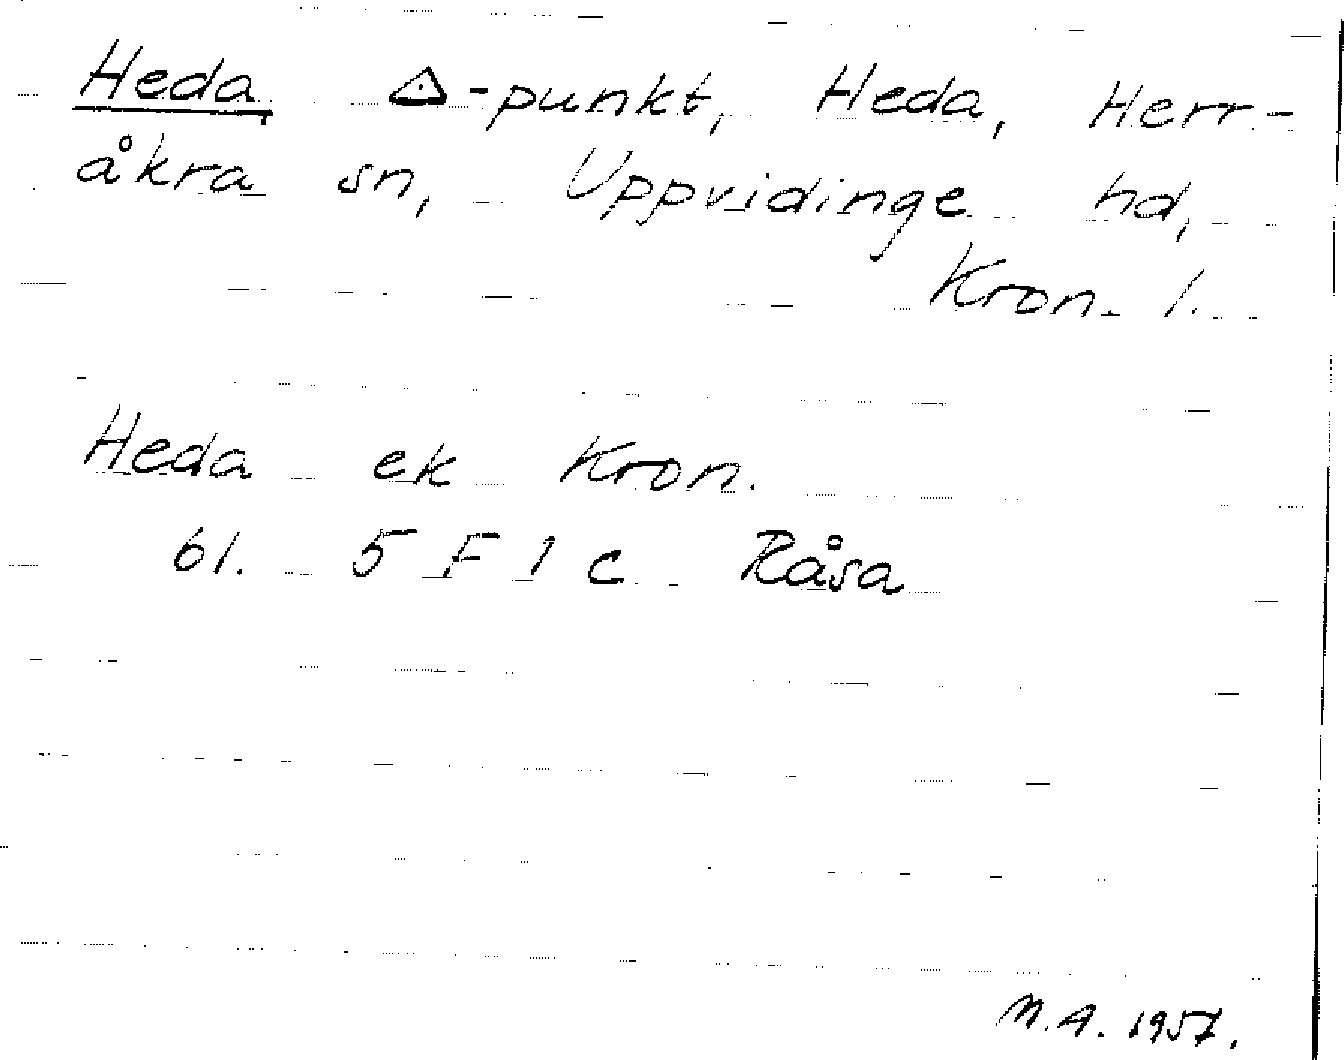 Heda, △-punkt, Heda, Herr-
åkra sn, Uppvidinge hd,
Kron. l.
Heda ek Kron.
61. 5 F 1 c Råsa
M.A. 1957.